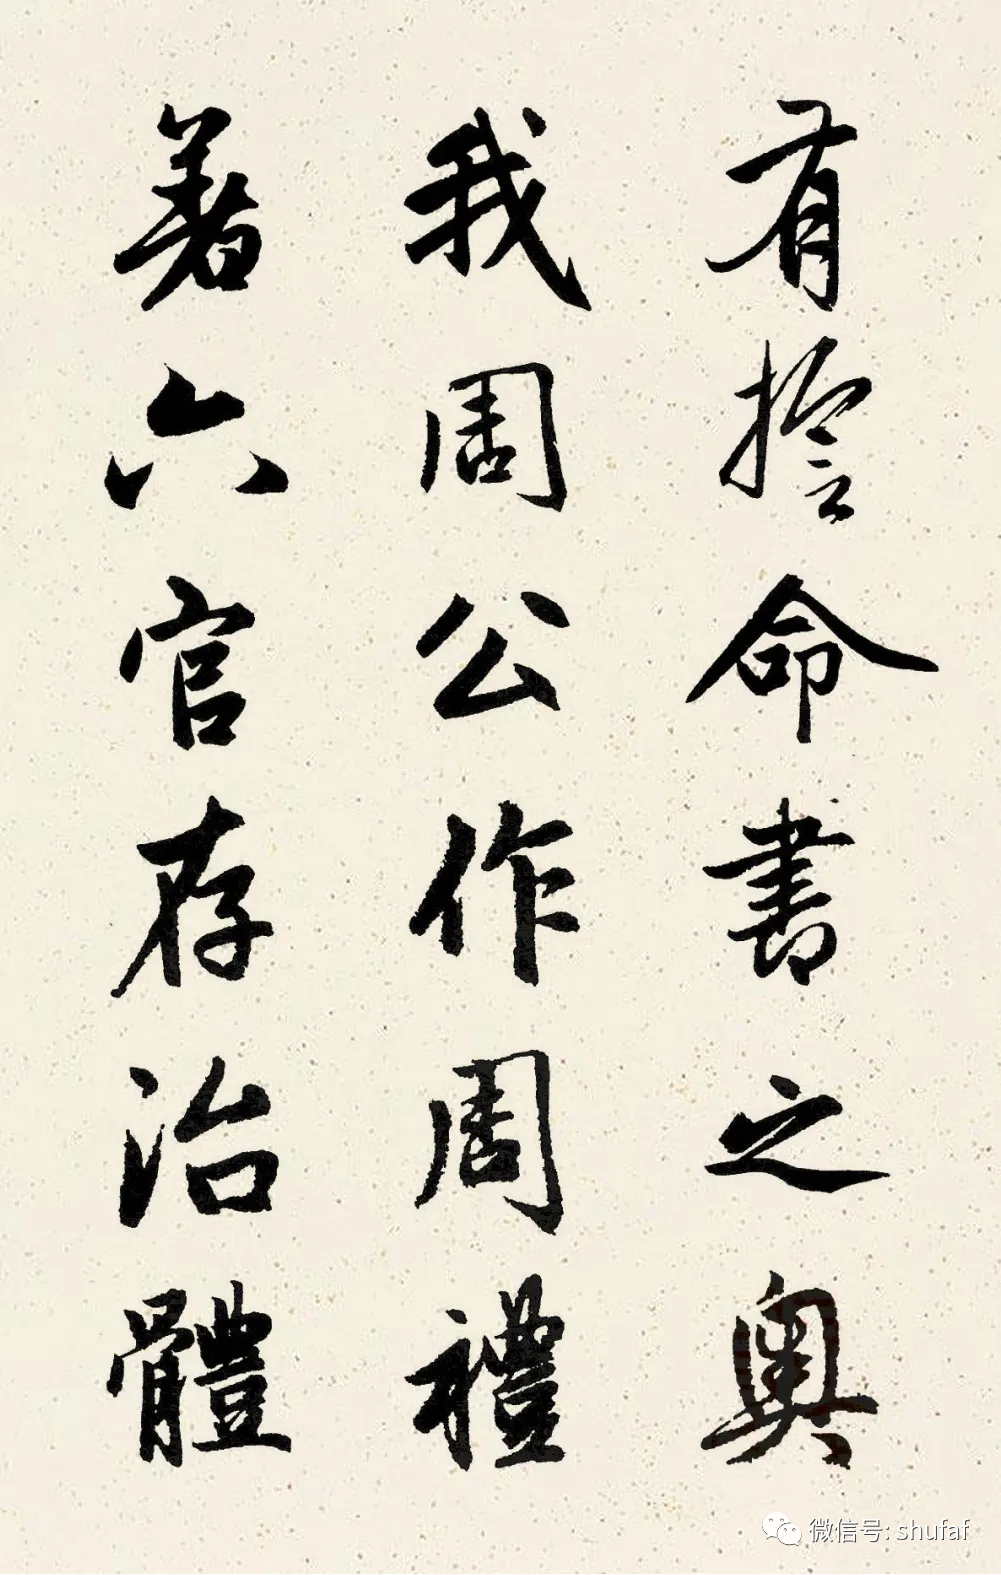 有誓命書之奥
我周公作周禮
著六官存治體
微信号: shufaf